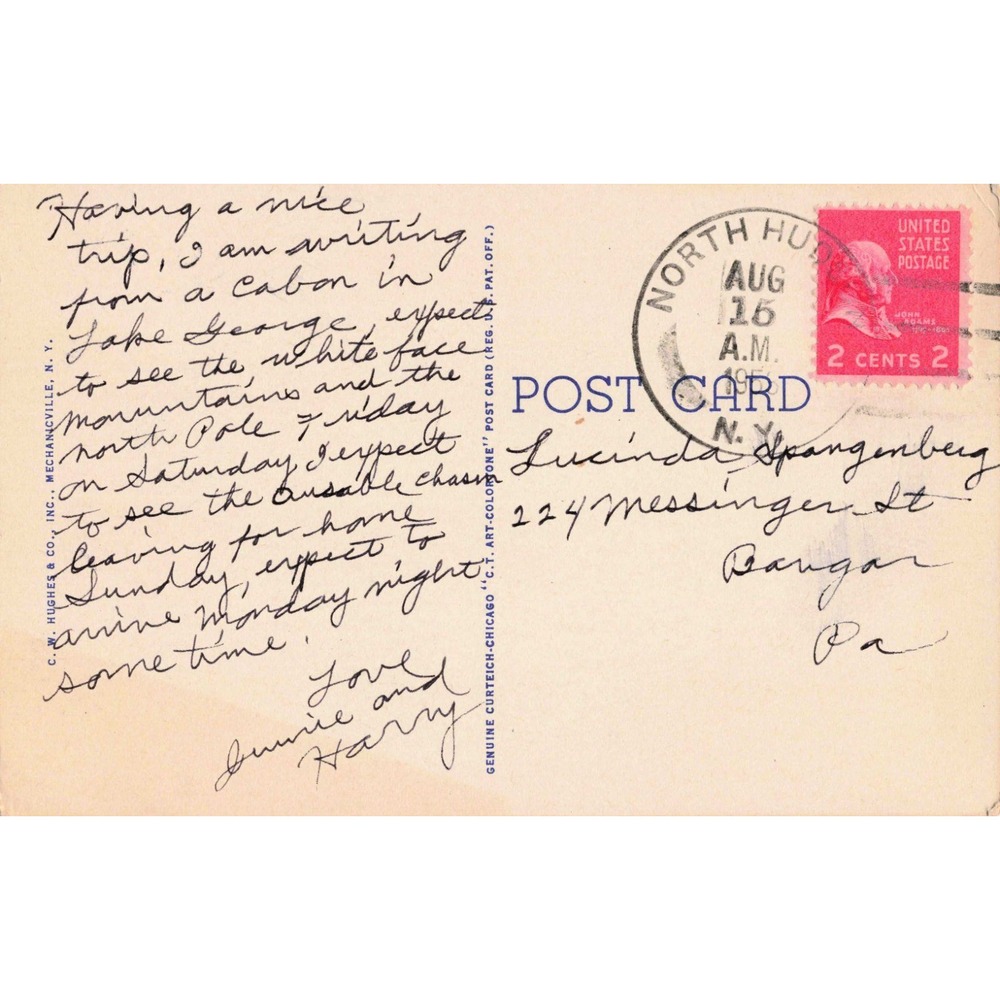 Having a nice
trip, I am writing
from a cabon in
Lake George, expect
to see the white face
mountains and the
north Pole Friday
on Saturday I expect
to see the ausable chasm
leaving for home
Sunday, expect to
arrive Monday night
some time.
Love
and
Harry
C. W. HUGHES & CO., INC., MECHANICVILLE, N. Y.
GENUINE CURTEICH-CHICAGO "C.T. ART-COLORTONE" POST CARD (REG. U.S. PAT. OFF.)
POST CARD
NORTH
AUG
15
A.M.
N.Y.
UNITED
STATES
POSTAGE
JOHN
ADAMS
2 CENTS 2
Lucinda Spangenberg
224 Messinger St
Bangor
Pa